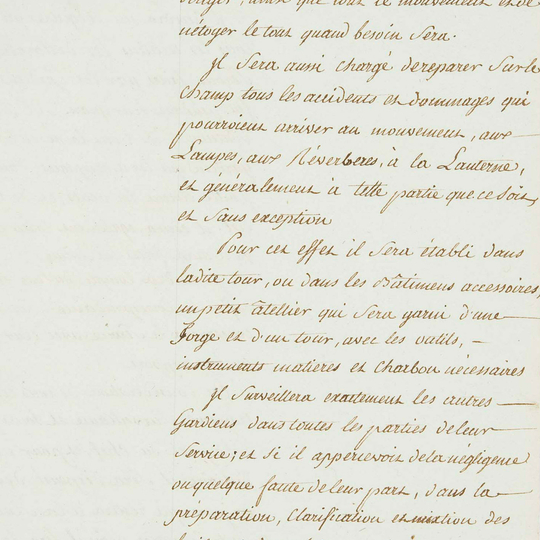 ainsi que tout le mouvement et de
nétoyer le tout quand besoin Séra.
Jl Sera aussi chargé de reparer Sur le
champ tous les accidents et dommages qui
pourroient arriver au mouvement, aux
Lampes, aux Réverberes, à la Lanterne,
et généralement à telle partie que ce Soit,
et Sans exception
Pour cet effet il Sera établi dans
ladite tour, ou dans les Bâtimens accessoires,
un petit attelier qui Sera garni d'une
Forge et d'un tour, avec les outils,
instruments matieres et Charbon nécessaires
Jl Surveillera exactement les autres
Gardiens dans toutes les parties de leur
Service; et Si il appercevoit de la négligence
ou quelque faute de leur part, dans la
préparation, Clarification et mixtion des